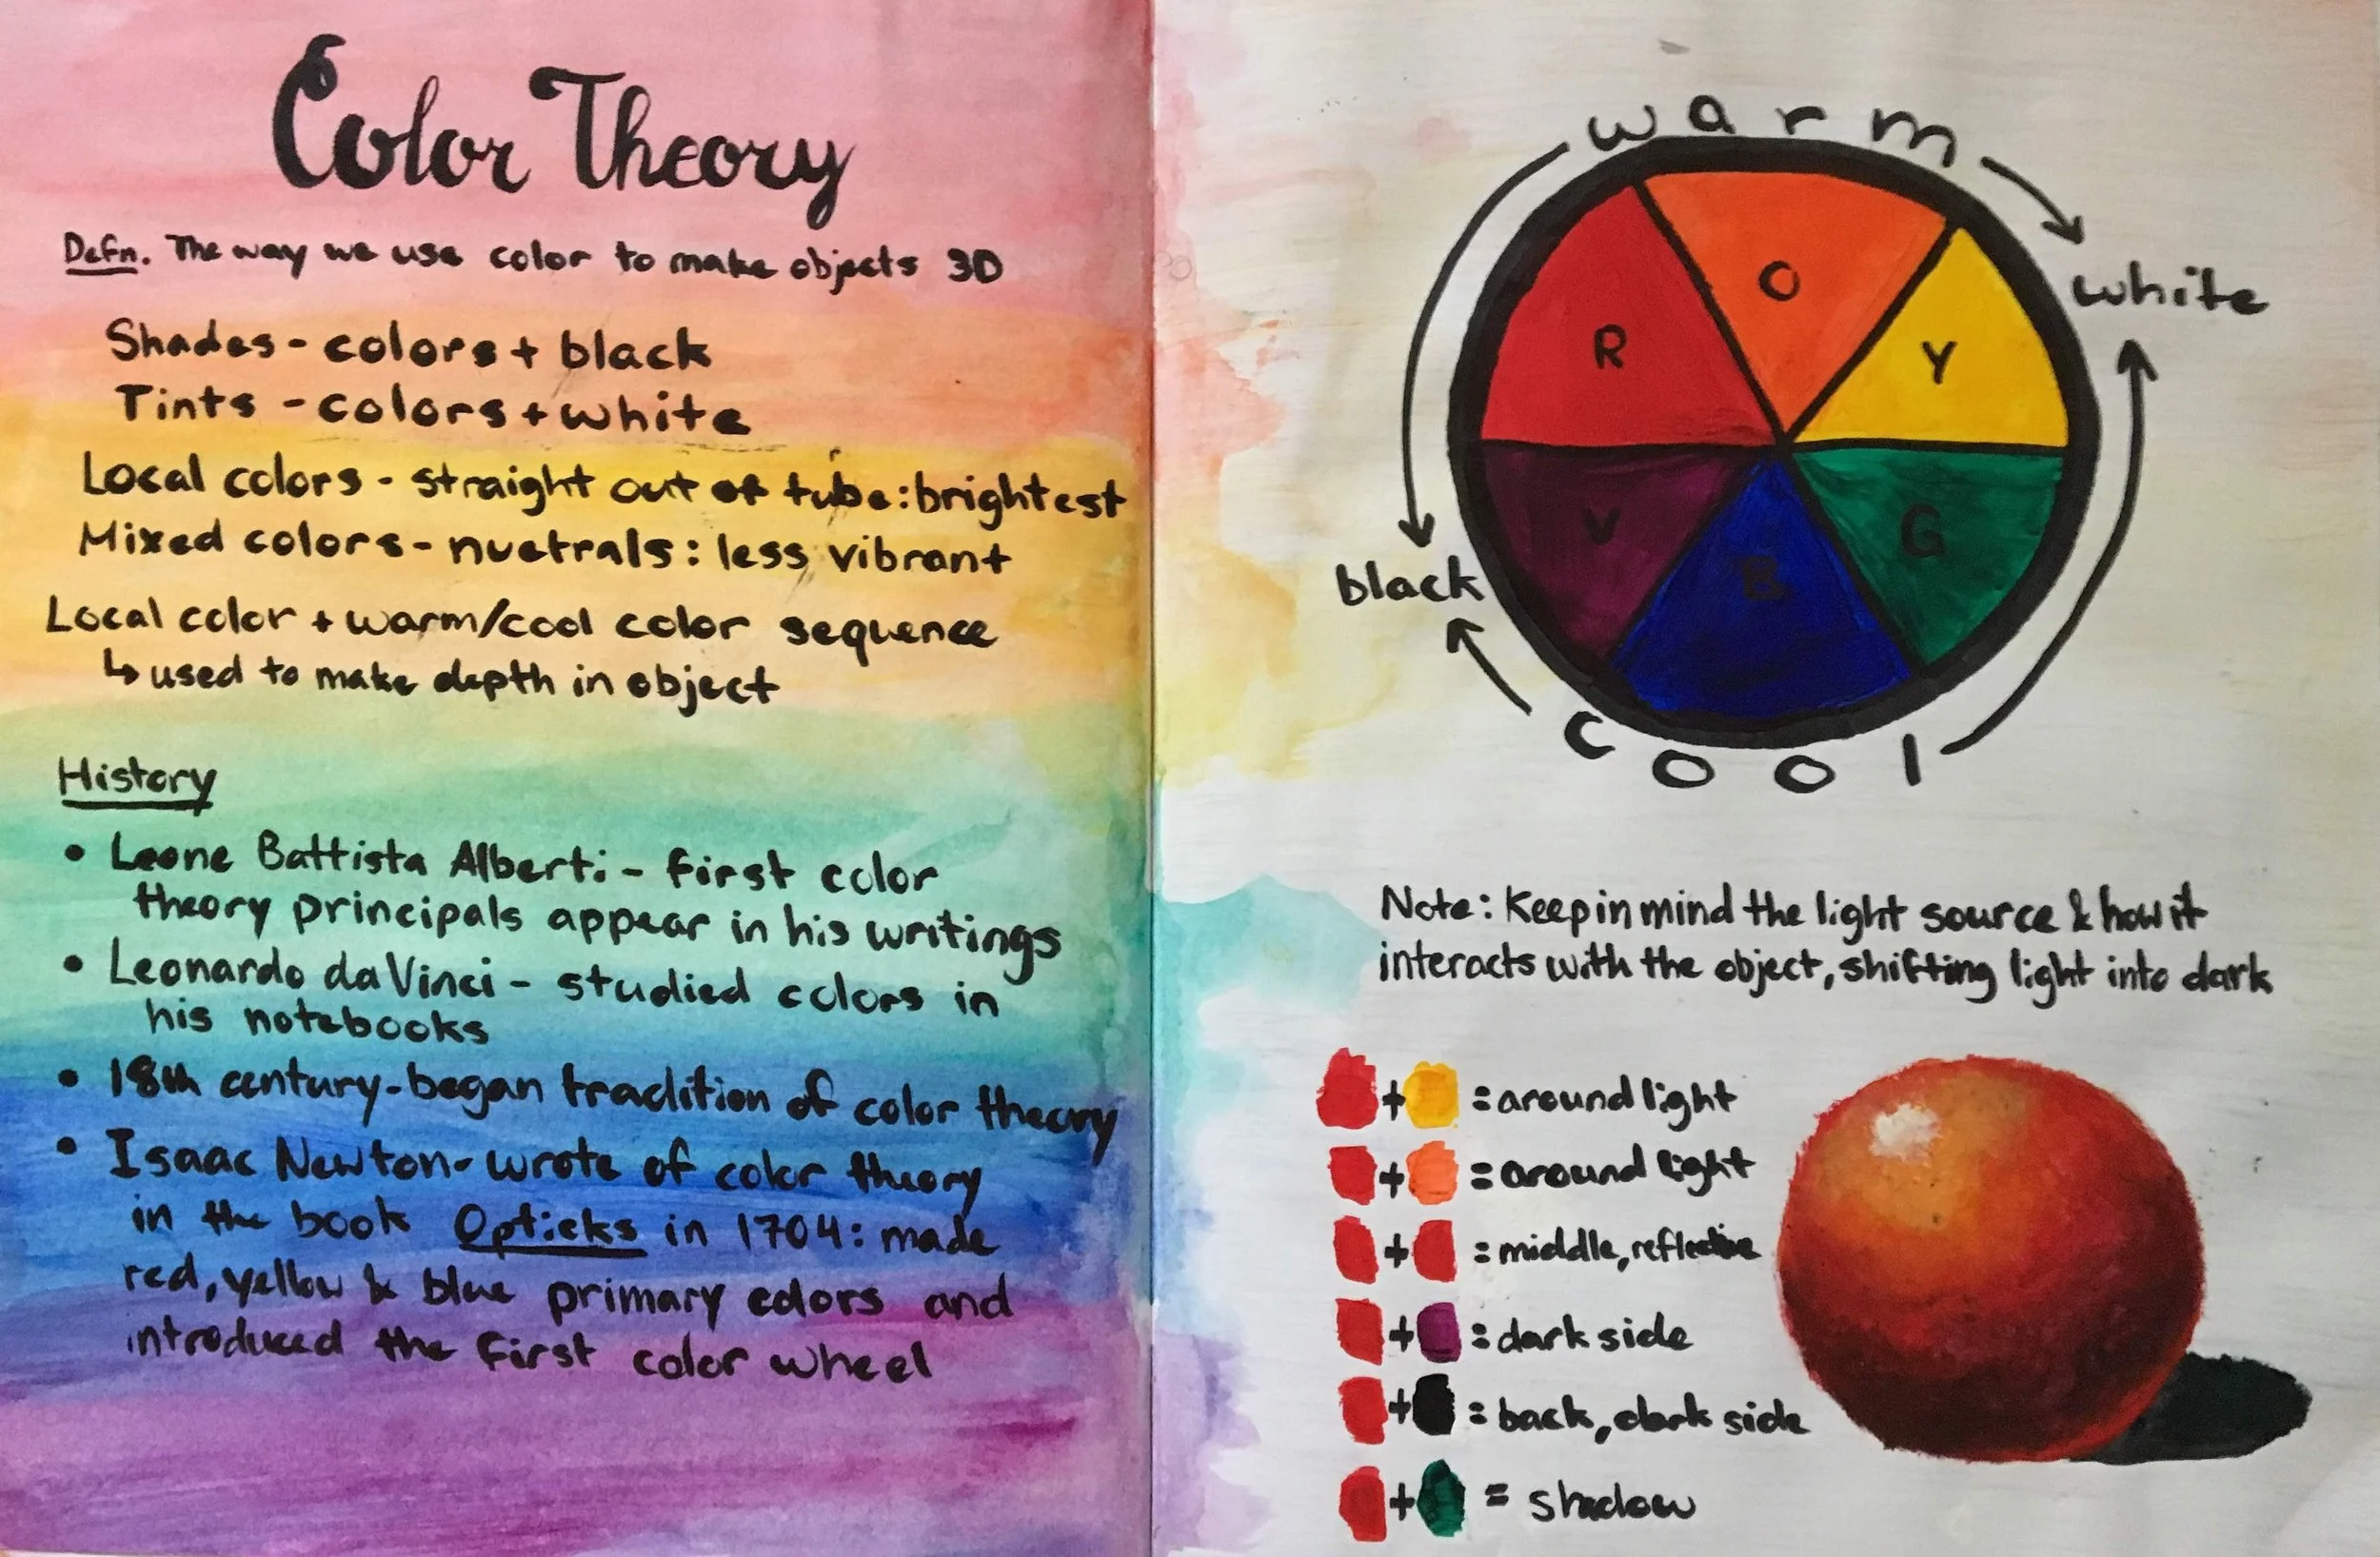 Color Theory
Defn. The way we use color to make objects 3D
Shades - colors + black
Tints - colors + white
Local colors - straight out of tube: brightest
Mixed colors - nuetrals: less vibrant
Local color + warm/cool color sequence
↳ used to make depth in object
History
• Leone Battista Alberti - first color
theory principals appear in his writings
• Leonardo da Vinci - studied colors in
his notebooks
• 18th century - began tradition of color theory
• Isaac Newton - wrote of color theory
in the book Opticks in 1704: made
red, yellow & blue primary colors and
introduced the first color wheel
warm
white
O
R
Y
V
B
G
black
cool
Note: Keep in mind the light source & how it
interacts with the object, shifting light into dark
+ = around light
+ = around light
+ = middle, reflective
+ = dark side
+ = back, dark side
+ = shadow